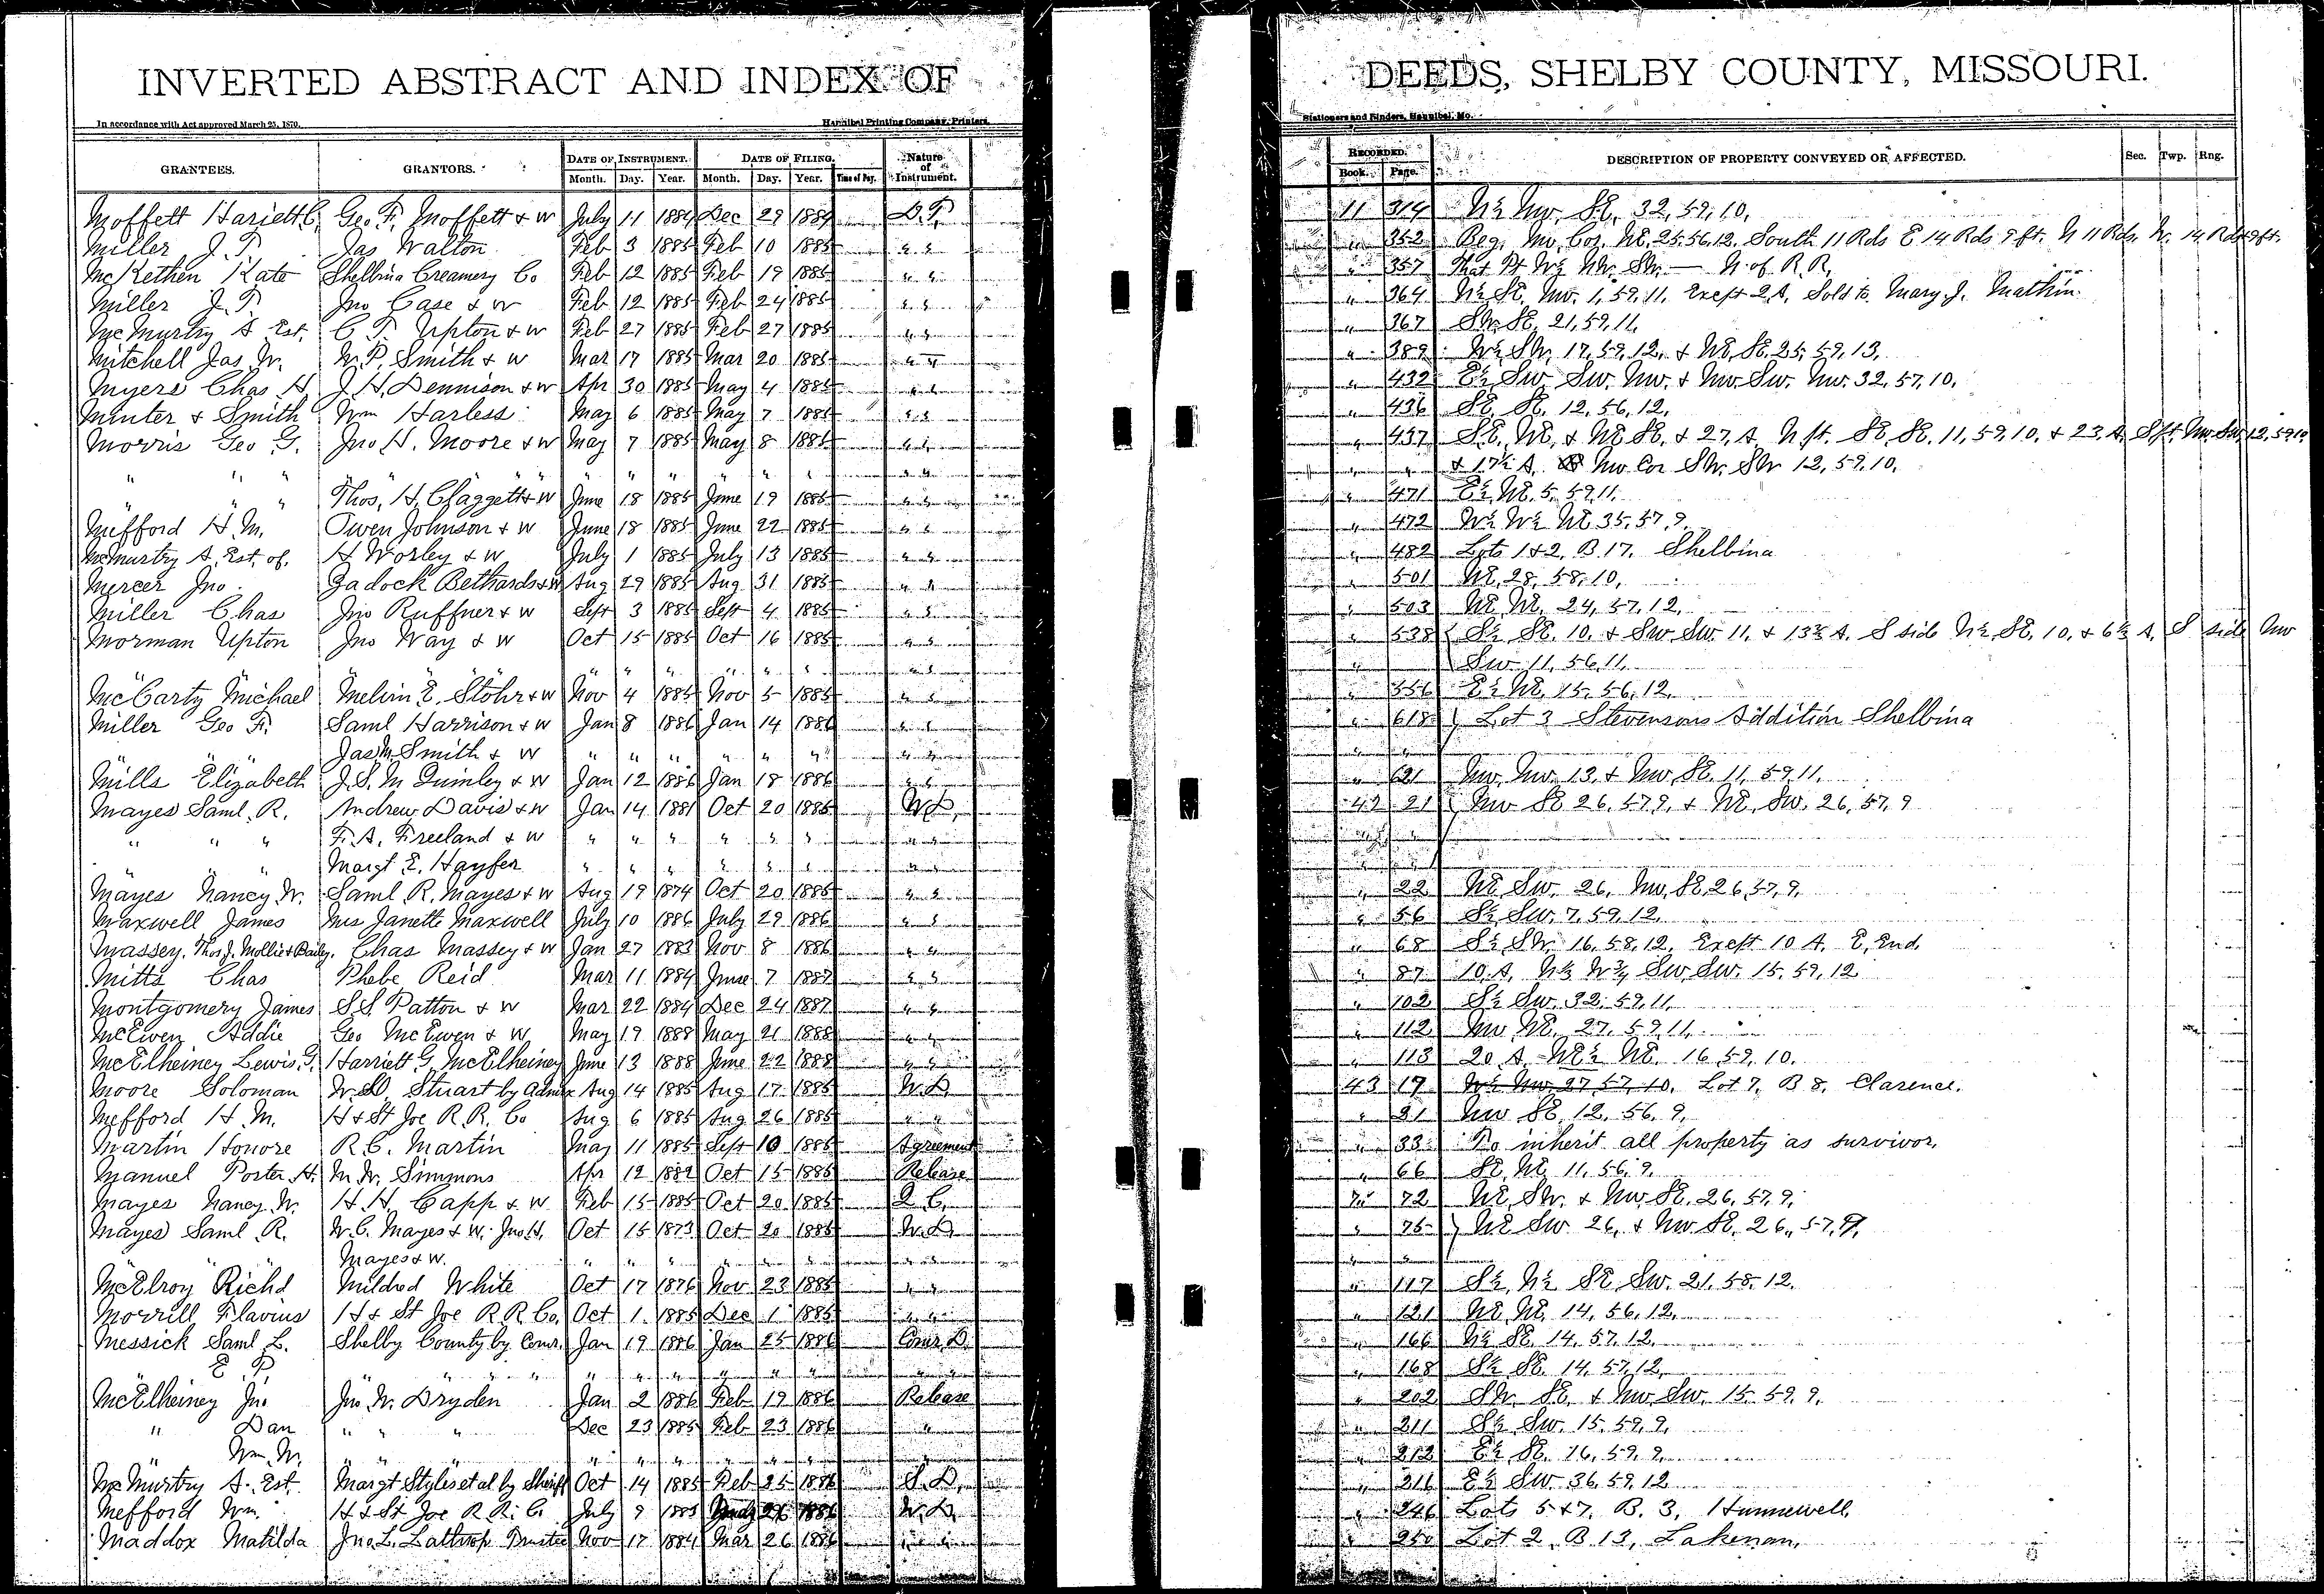 INVERTED ABSTRACT AND INDEX OF DEEDS, SHELBY COUNTY, MISSOURI.
In accordance with Act approved March 25, 1870. Hannibal Printing Company, Printers, Stationers and Binders, Hannibal, Mo.
GRANTEES. GRANTORS. DATE OF INSTRUMENT. DATE OF FILING. Nature of Instrument. RECORDED. DESCRIPTION OF PROPERTY CONVEYED OR AFFECTED. Sec. Twp. Rng.
Month. Day. Year. Month. Day. Year. Time of Day. Book. Page.
Moffett Hariett C. Geo. F. Moffett & W July 11 1884 Dec 29 1884 D.T. 11 314 N½ Nw. SE. 32, 59, 10,
Miller J. T. Jas Walton Feb 3 1885 Feb 10 1885 " " " 352 Beg. Nw. Cor. NE. 25. 56. 12. South 11 Rds E 14 Rds 9 ft. N 11 Rds. W. 14 Rds 9 ft.
McKethen Kate Shelbina Creamery Co Feb 12 1885 Feb 19 1885 " " " 357 That Pt W½ NW. SW. — N. of R.R.
Miller J. T. Jno Case & W Feb 12 1885 Feb 24 1885 " " " 364 N½ SE. Nw. 1, 59, 11, Except 2 A. Sold to Mary J.
McMurtry A Est. C. T. Upton & W Feb 27 1885 Feb 27 1885 " " " 367 SW. SE. 21, 59, 11,
Mitchell Jas. W. W. P. Smith & W Mar 17 1885 Mar 20 1885 " " " 389 W½ SW. 17, 59, 12, & NE. SE. 25, 59, 13,
Myers Chas H J. H. Dennison & W Apr 30 1885 May 4 1885 " " " 432 E½ Sw. Sw. Nw. & Nw. Sw. Nw. 32, 57, 10,
Minter & Smith Wm Harless May 6 1885 May 7 1885 " " " 436 SE. SE. 12, 56, 12,
Morris Geo G. Jno H. Moore & W May 7 1885 May 8 1885 " " " 437 SE. NE. & NE SE. & 27, A. N. pt. SE SE. 11, 59, 10, & 23 A. S pt. Nw. Sw. 12, 59 10
" " " " " " " " " " " " " & 17½ A. Nw Cor SW. SW 12, 59, 10,
" " " Thos. H. Claggett & W June 18 1885 June 19 1885 " " " 471 E½ NE. 5, 59, 11,
Mefford H. M. Owen Johnson & W June 18 1885 June 22 1885 " " " 472 W½ W½ NE 35, 57, 9,
McMurtry A. Est. of. A Worley & W July 1 1885 July 13 1885 " " " 482 Lots 1 & 2, B. 17, Shelbina
Mercer Jno. Zadock Bethards & W Aug 29 1885 Aug 31 1885 " " " 501 NE, 28, 58, 10,
Miller Chas Jno Ruffner & W Sept 3 1885 Sept 4 1885 " " " 503 NE NE. 24, 57, 12,
Morman Upton Jno Way & W Oct 15 1885 Oct 16 1885 " " " 538 S½ SE. 10, & Sw Sw 11, & 13½ A. S side N½ SE. 10, & 6½ A, S side Nw
" " " " " " " " " Sw 11, 56, 11,
McCarty Michael Melvin E. Stohr & W Nov 4 1885 Nov 5 1885 " " " 556 E½ NE. 15, 56, 12,
Miller Geo F. Saml Harrison & W Jan 8 1886 Jan 14 1886 " " " 618 Lot 3 Stevensons Addition Shelbina
" " Jas. M. Smith & W " " " " " " " " " "
Mills Elizabeth J. S. M Quimley & W Jan 12 1886 Jan 18 1886 " " " 621 Nw. Nw. 13, & Nw, SE. 11, 59, 11,
Mayes Saml. R. Andrew Davis & W Jan 14 1881 Oct 20 1885 W.D. 42 21 Nw SE 26, 57, 9, & NE, Sw. 26, 57, 9
" " " F. A. Freeland & W " " " " " " " " " "
" " " Margt E. Hayfer " " " " " " " " " "
Mayes Nancy W. Saml R. Mayes & W Aug 19 1874 Oct 20 1885 " " " 22 NE Sw. 26, Nw, SE, 26, 57, 9,
Maxwell James Mrs Janette Maxwell July 10 1886 July 29 1886 " " " 56 S½ Sw. 7, 59, 12,
Massey, Thos J. Mollie & Bailey. Chas Massey & W Jan 27 1883 Nov 8 1886 " " " 68 S½ SW. 16, 58, 12, Except 10 A. E. End.
Mitts Chas Phebe Reid Mar 11 1884 June 7 1887 " " " 87 10 A, N½ W¾ Sw Sw. 15, 59, 12
Montgomery James S. S. Patton & W Mar 22 1884 Dec 24 1887 " " " 102 S½ Sw. 32, 59, 11,
McEwen Addie Geo McEwen & W May 19 1888 May 21 1888 " " " 112 Nw NE. 27, 59, 11,
McElheiney Lewis. G. Harriett G. McElheiney June 13 1888 June 22 1888 " " " 113 20 A NE½ NE. 16, 59, 10,
Moore Soloman W. D. Stuart by Admx Aug 14 1885 Aug 17 1885 W.D. 43 17 W½ Nw 27, 57, 10, Lot 7, B 8, Clarence.
Mefford H. M. H & St Joe R. R. Co Aug 6 1885 Aug 26 1885 " " " 21 Nw SE 12, 56, 9,
Martin Honore R. C. Martin May 11 1885 Sept 10 1885 Agreement " 33 To inherit all property as survivor.
Manuel Porter H. M. W. Simmons Apr 12 1882 Oct 15 1885 Release " 66 SE, NE 11, 56, 9,
Mayes Nancy W. H. H. Capp & W Feb 15 1885 Oct 20 1885 Q.C. " 72 NE, SW. & Nw, SE. 26, 57, 9,
Mayes Saml R. W. C. Mayes & W. Jno. H. Oct 15 1873 Oct 20 1885 W.D. " 75 NE Sw 26, & Nw SE. 26, 57, 9,
" " Mayes & W. " " " " " " " " " "
McElroy Richd Mildred White Oct 17 1876 Nov 23 1885 " " " 117 S½ N½ SE Sw. 21, 58, 12.
Morrill Flavius H & St Joe R R Co. Oct 1 1885 Dec 1 1885 " " " 121 NE NE. 14, 56, 12,
Messick Saml L. Shelby County by Comr. Jan 19 1886 Jan 25 1886 Comr. D. " 166 N½ SE. 14, 57, 12,
" E. P. " " " " " " " " " " " 168 S½ SE. 14, 57, 12,
McElheiney Jno Jno W. Dryden Jan 2 1886 Feb 19 1886 Release " 202 SW. SE. & Nw Sw. 15, 59, 9,
" Dan " " " Dec 23 1885 Feb 23 1886 " " 211 S½ Sw. 15, 59, 9,
" Wm. W. " " " " " " " " " 212 E½ SE. 16, 59, 9,
McMurtry A. Est. Margt Styles et al by Sheriff Oct 14 1885 Feb 25 1886 S.D. " 216 E½ Sw 36, 59, 12
Mefford Wm. H & St Joe R. R. Co July 9 1885 26 1886 W.D. " 246 Lots 5 & 7, B. 3, Hunnewell,
Maddox Matilda Jno. L. Lathrop Trustee Nov 17 1884 Mar 26 1886 " " " 250 Lot 2, B 13, Lakenan,